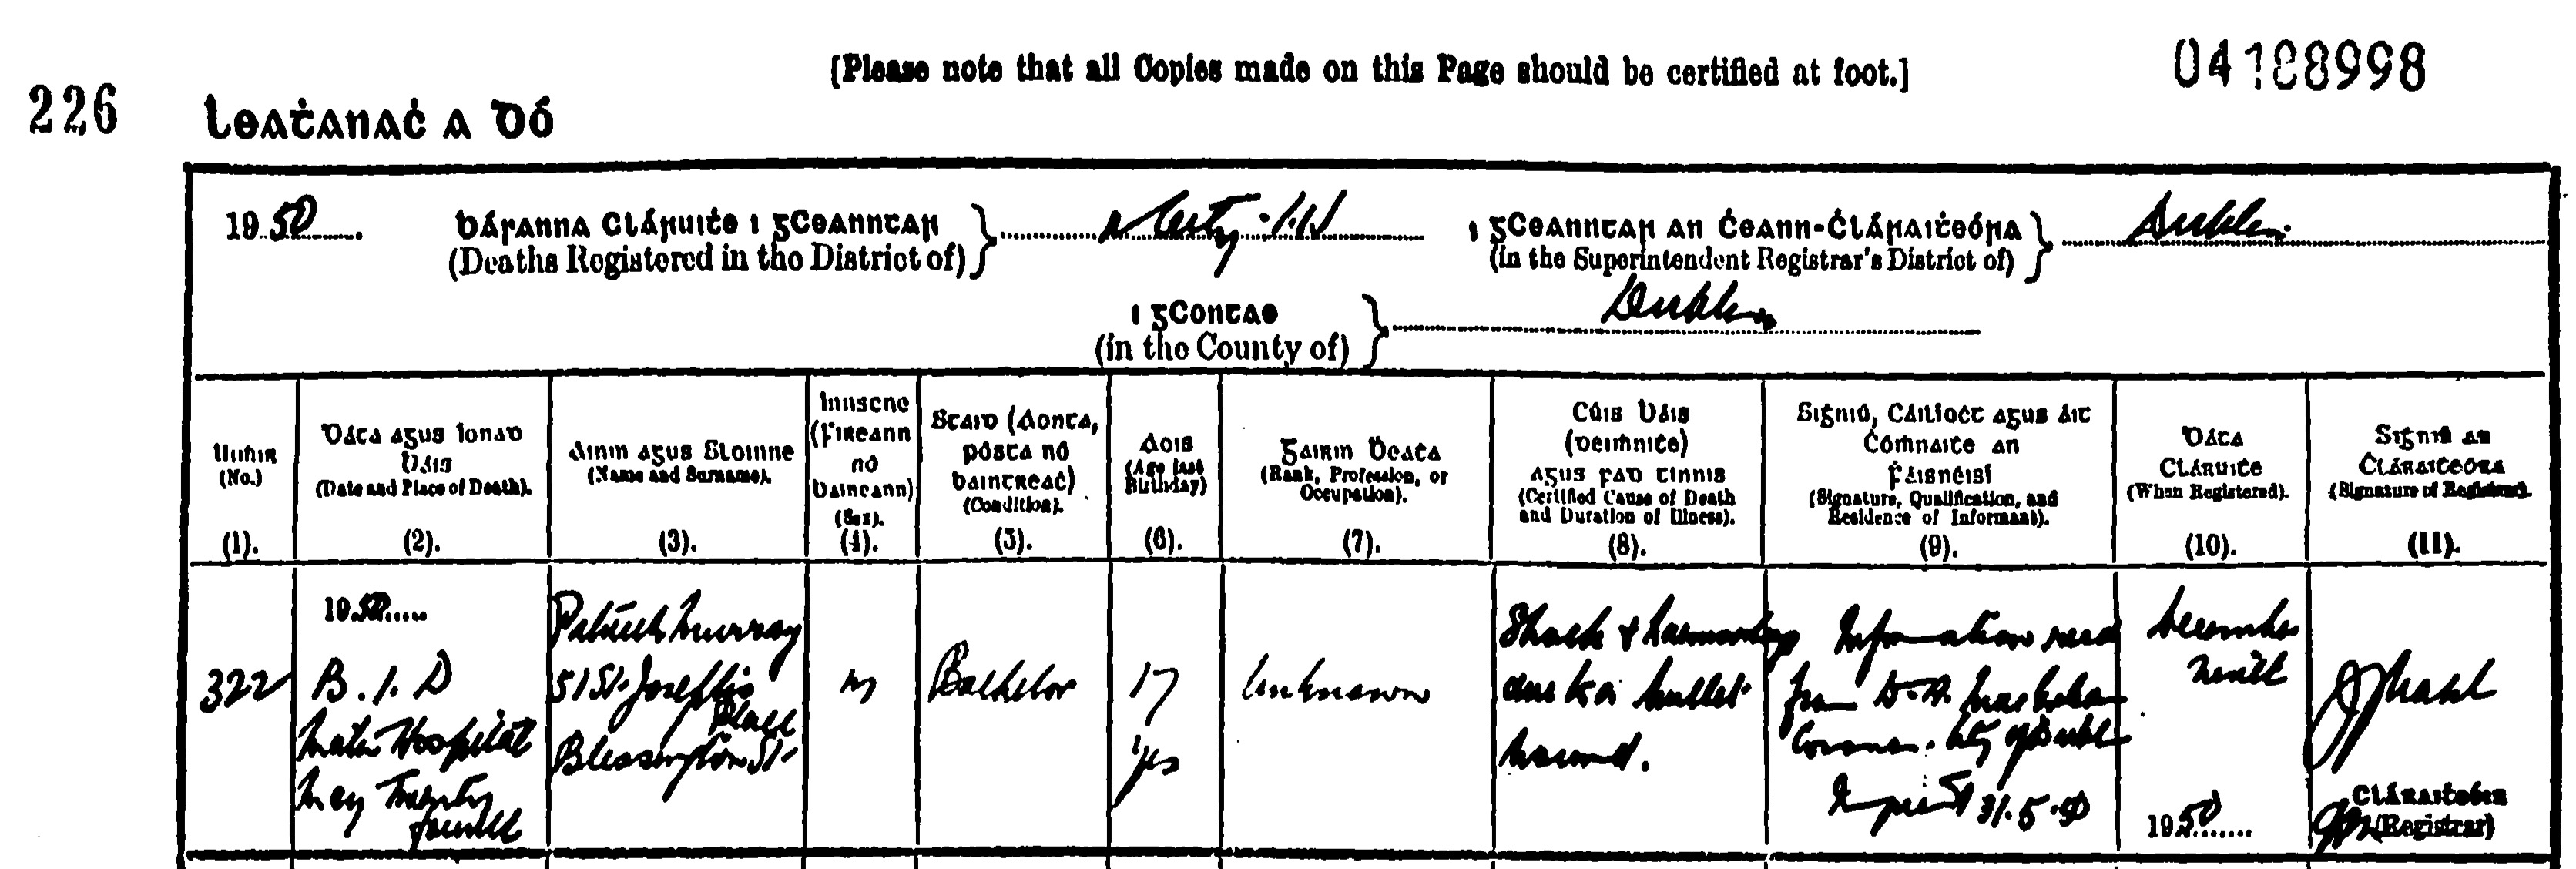 [Please note that all Copies made on this Page should be certified at foot.]
04188998
226
Leaṫanaċ a Dó
1950
Básanna Cláruiṫe i gCeanntar
(Deaths Registered in the District of)
i gCeanntar an Ċeann-Ċláraiṫeóra
(in the Superintendent Registrar's District of)
Dublin
i gContae
(in the County of)
Dublin
Uimhir
(No.)
(1).
Dáta agus Ionad
Báis
(Date and Place of Death).
(2).
Ainm agus Sloinne
(Name and Surname).
(3).
Innscne
(Fireann
nó
baineann)
(Sex).
(4).
Staid (Aonta,
pósta nó
baintreaċ)
(Condition).
(5).
Aois
(Age last
Birthday)
(6).
Gairm Beata
(Rank, Profession, or
Occupation).
(7).
Cúis Báis
(deiṁniṫe)
agus fad tinnis
(Certified Cause of Death
and Duration of Illness).
(8).
Signiú, Cáilíoċt agus áit
Cóṁnaiṫe an
Ḟaisnéisí
(Signature, Qualification, and
Residence of Informant).
(9).
Dáta
Cláruiṫe
(When Registered).
(10).
Signiú an
Cláraiṫeóra
(Signature of Registrar).
(11).
322
1950
B.I.D
Mater Hospital
May Twenty
fourth
Patrick Murray
51 St. Joseph's
Place
Blessington St.
M
Bachelor
17
yrs
Unknown
Shock & haemorrhage
due to a bullet
wound.
Information recd
from D.A. MacErlean
Coroner. City of Dublin
Inquest 31.5.50
December
Ninth
1950
Cláraiṫeóir
(Registrar)